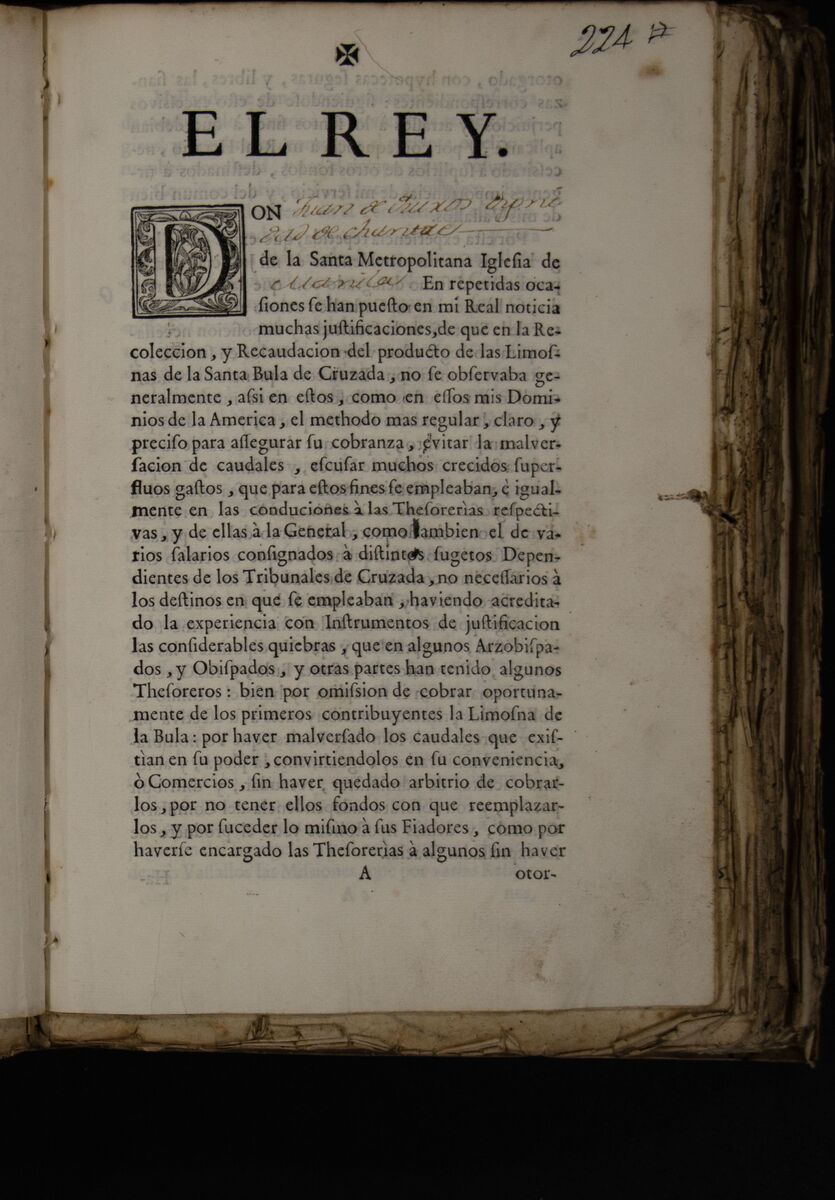 224
✠
EL REY.
DON Juan de
dad de chantre
de la Santa Metropolitana Iglesia de
Manila En repetidas oca-
ſiones ſe han pueſto en mi Real noticia
muchas juſtificaciones, de que en la Re-
coleccion, y Recaudacion del producto de las Limoſ-
nas de la Santa Bula de Cruzada, no ſe obſervaba ge-
neralmente, aſsi en eſtos, como en eſſos mis Domi-
nios de la America, el methodo mas regular, claro, y
preciſo para aſſegurar ſu cobranza, evitar la malver-
ſacion de caudales, eſcuſar muchos crecidos ſuper-
fluos gaſtos, que para eſtos fines ſe empleaban, è igual-
mente en las conduciones à las Theſorerìas reſpecti-
vas, y de ellas à la General, como tambien el de va-
rios ſalarios conſignados à diſtintos ſugetos Depen-
dientes de los Tribunales de Cruzada, no neceſſarios à
los deſtinos en que ſe empleaban, haviendo acredita-
do la experiencia con Inſtrumentos de juſtificacion
las conſiderables quiebras, que en algunos Arzobiſpa-
dos, y Obiſpados, y otras partes han tenido algunos
Theſoreros: bien por omiſsion de cobrar oportuna-
mente de los primeros contribuyentes la Limoſna de
la Bula: por haver malverſado los caudales que exiſ-
tìan en ſu poder, convirtiendolos en ſu conveniencia,
ò Comercios, ſin haver quedado arbitrio de cobrar-
los, por no tener ellos fondos con que reemplazar-
los, y por ſuceder lo miſmo à ſus Fiadores, como por
haverſe encargado las Theſorerìas à algunos ſin haver
A otor-